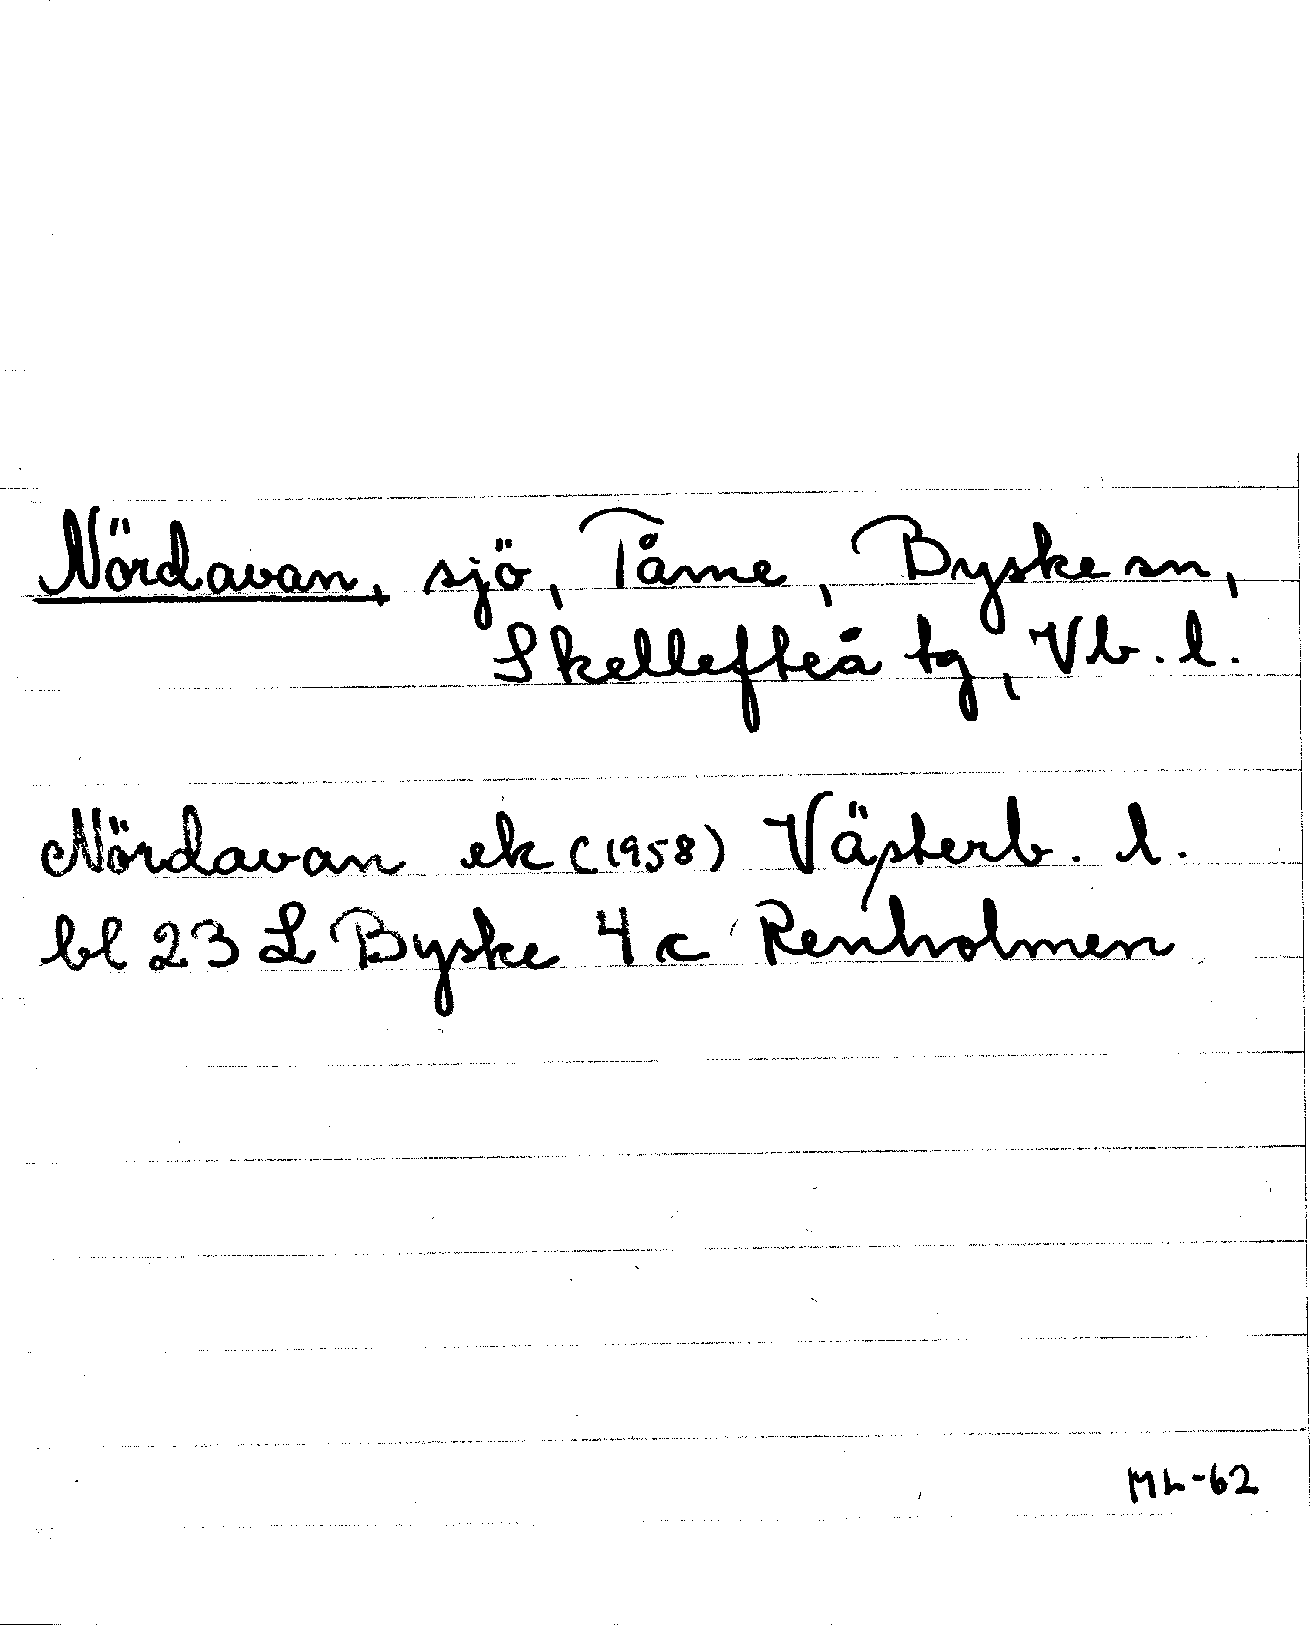 Nördavan, sjö, Tåme, Byske sn,
Skellefteå tg, Vb. l.
Nördavan ek (1958) Västerb. l.
bl 23 L Byske 4 c Renholmen
ML-62